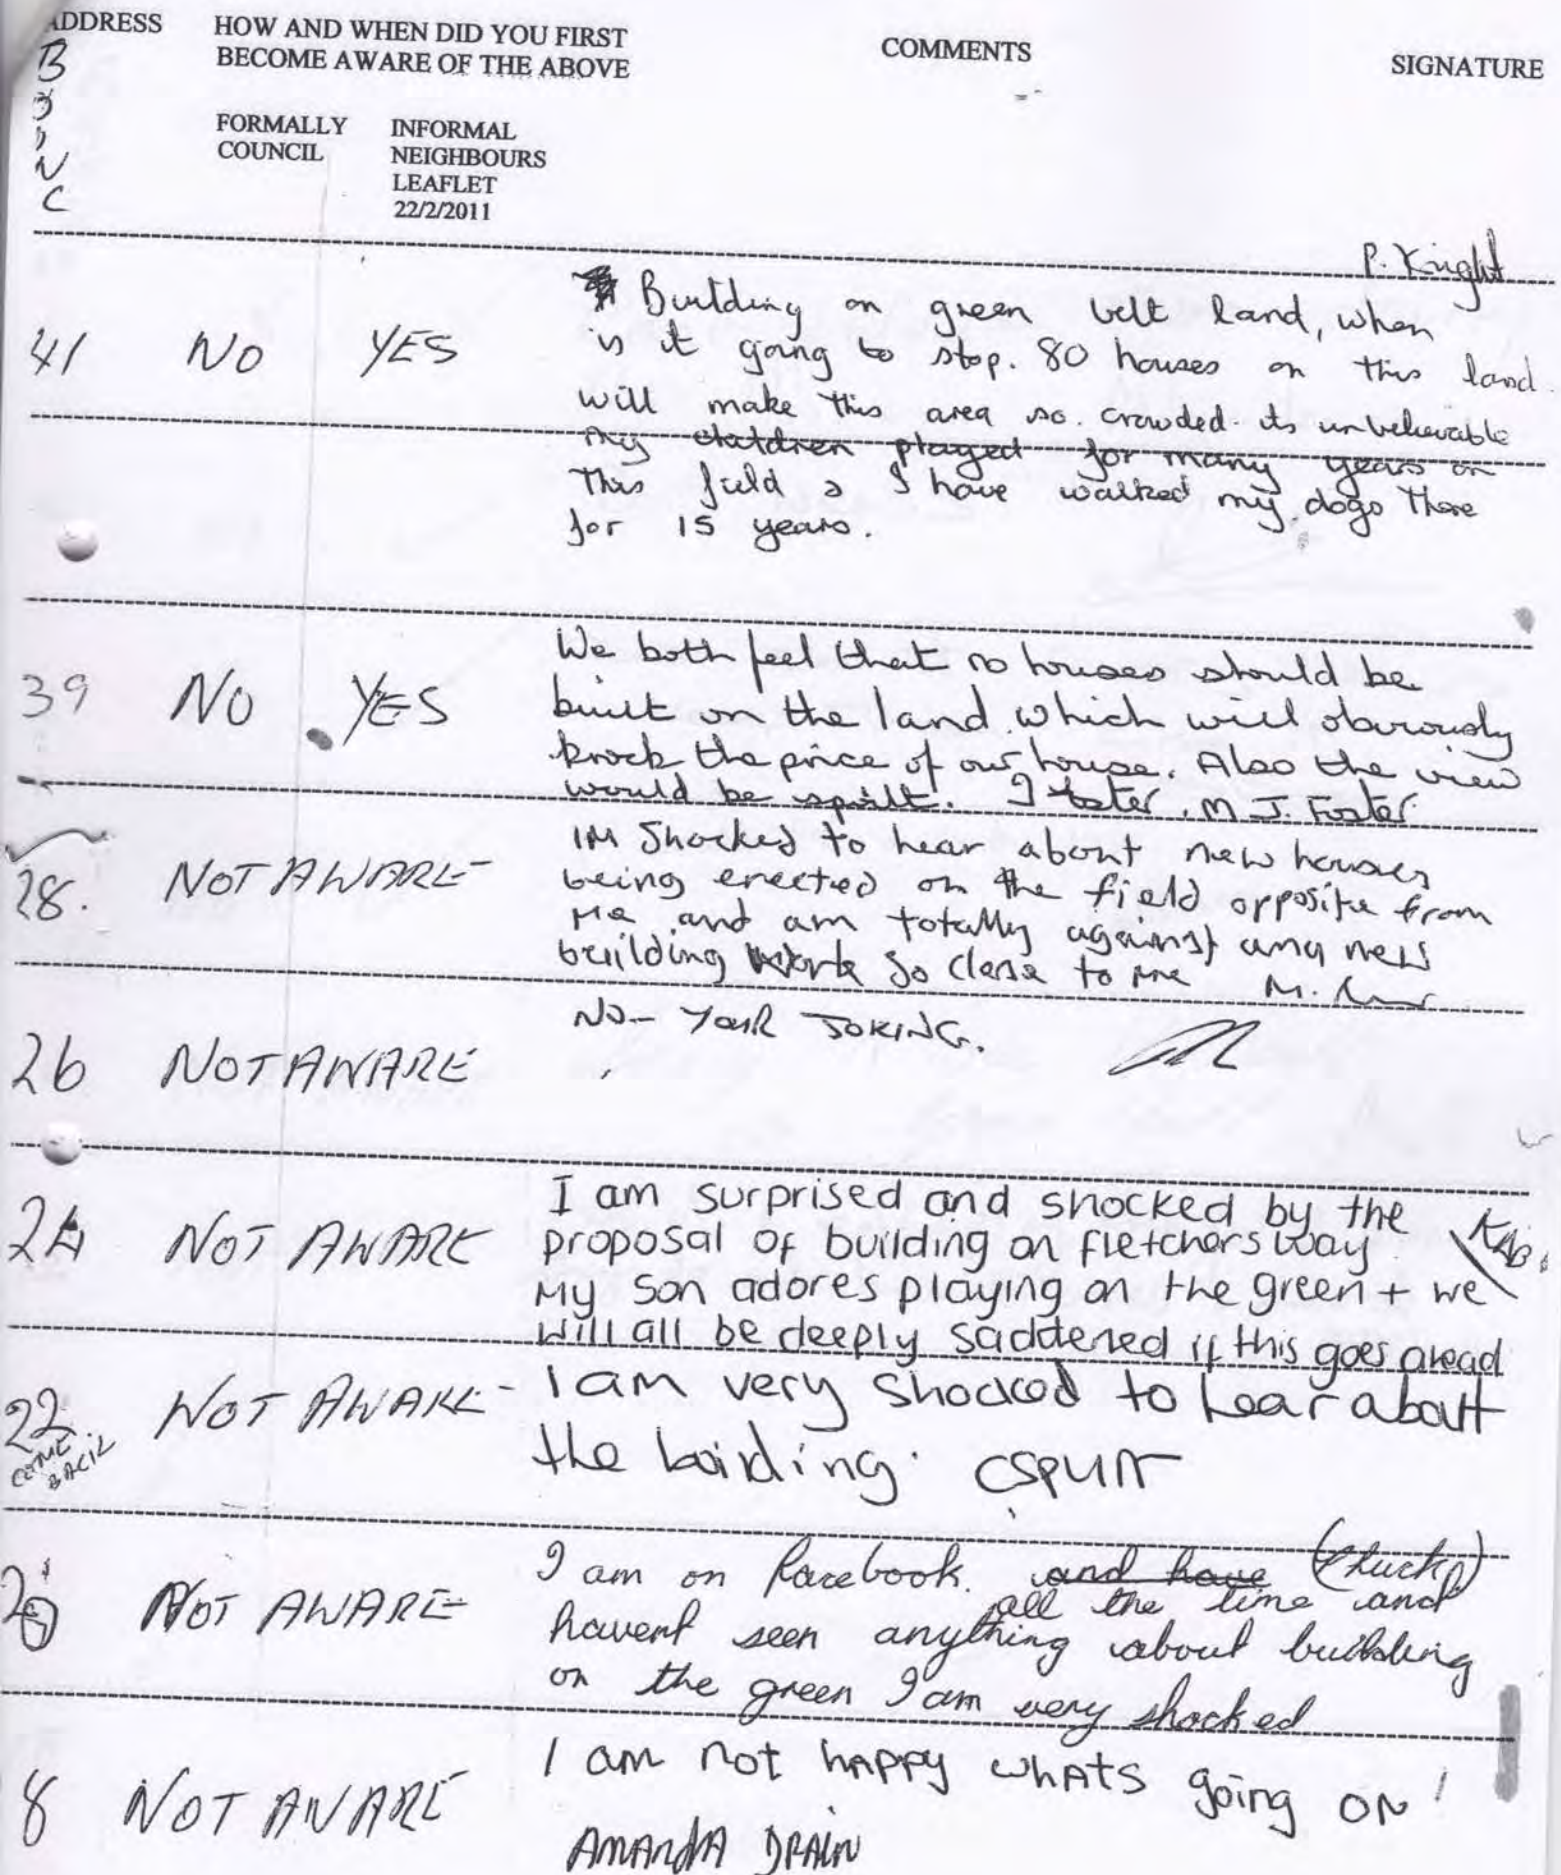 ADDRESS HOW AND WHEN DID YOU FIRST
BECOME AWARE OF THE ABOVE
COMMENTS
SIGNATURE
FORMALLY
COUNCIL
INFORMAL
NEIGHBOURS
LEAFLET
22/2/2011
P. Knight
41 NO YES
Building on green belt land, when
is it going to stop. 80 houses on this land.
will make this area so. crowded. its unbelievable
my children played for many years on
this field & I have walked my dogs there
for 15 years.
39 NO YES
We both feel that no houses should be
built on the land which will obviously
knock the price of our house. Also the view
would be spoilt. J Foster. M J. Foster
28. NOT AWARE
IM Shocked to hear about new houses
being erected on the field opposite from
me and am totally against any new
building work so close to me M.
26 NOT AWARE
NO - YOUR JOKING.
24 NOT AWARE
I am surprised and shocked by the
proposal of building on fletchers way
My son adores playing on the green + we
will all be deeply saddened if this goes ahead
KAB.
22 NOT AWARE
COME
BACK
I am very shocked to hear about
the boilding. CSPURR
20 NOT AWARE
I am on Facebook. and have
all the time and
havent seen anything about building
on the green I am very shocked
8 NOT AWARE
I am not happy whats going on!
AMANDA DRAIN